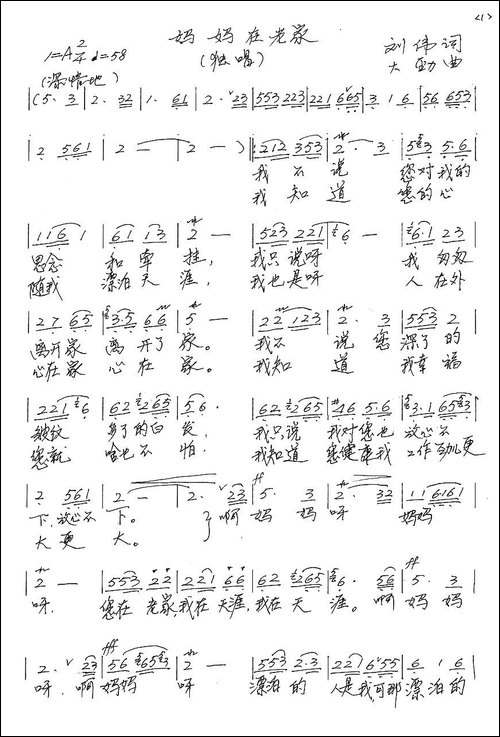 <1>
妈妈在老家
1=A 2/4 ♩=58
(独唱)
刘伟 词
(深情地)
大勐 曲
|(5· 3|2· 32|1· 61|2· 23|553 223|221 665|3 1 6|56 653|
|2 561|2 —|2 —)‖212 353|2· 3|553 5·6|
我不说 您对我的
我知道 您的心
|116 1|61 13|2 —|523 221|6 —|6·1 23|
思念 和牵挂, 我只说呀 我匆匆
随我 漂泊天涯, 我也是呀 人在外
|27 65|3·5 66|5 —|22 123|2· 3|553 2|
离开家 离开了家。 我不说您深了的
心在家 心在家。 我知道 我幸福
|221 6|62 265|5 6·|62 265|46 5·6|3·1 653|
皱纹 多了的白发, 我只说 我对您也 放心不
您就 啥也不怕. 我知道 您健康我 工作劲更
|2 561|2 —|2· 23|5· 3|2· 32|11 6161|
下,放心不下。 啊妈妈呀 妈妈
大更大。
|2 —|553 22|221 66|62 265|6· 56|5· 3|
呀. 您在老家,我在天涯,我在天涯。啊妈妈
|2· 23|56 6563|2 —|553 2·3|221 655|6 1 6|
呀.啊妈妈呀 漂泊的人是我可那漂泊的